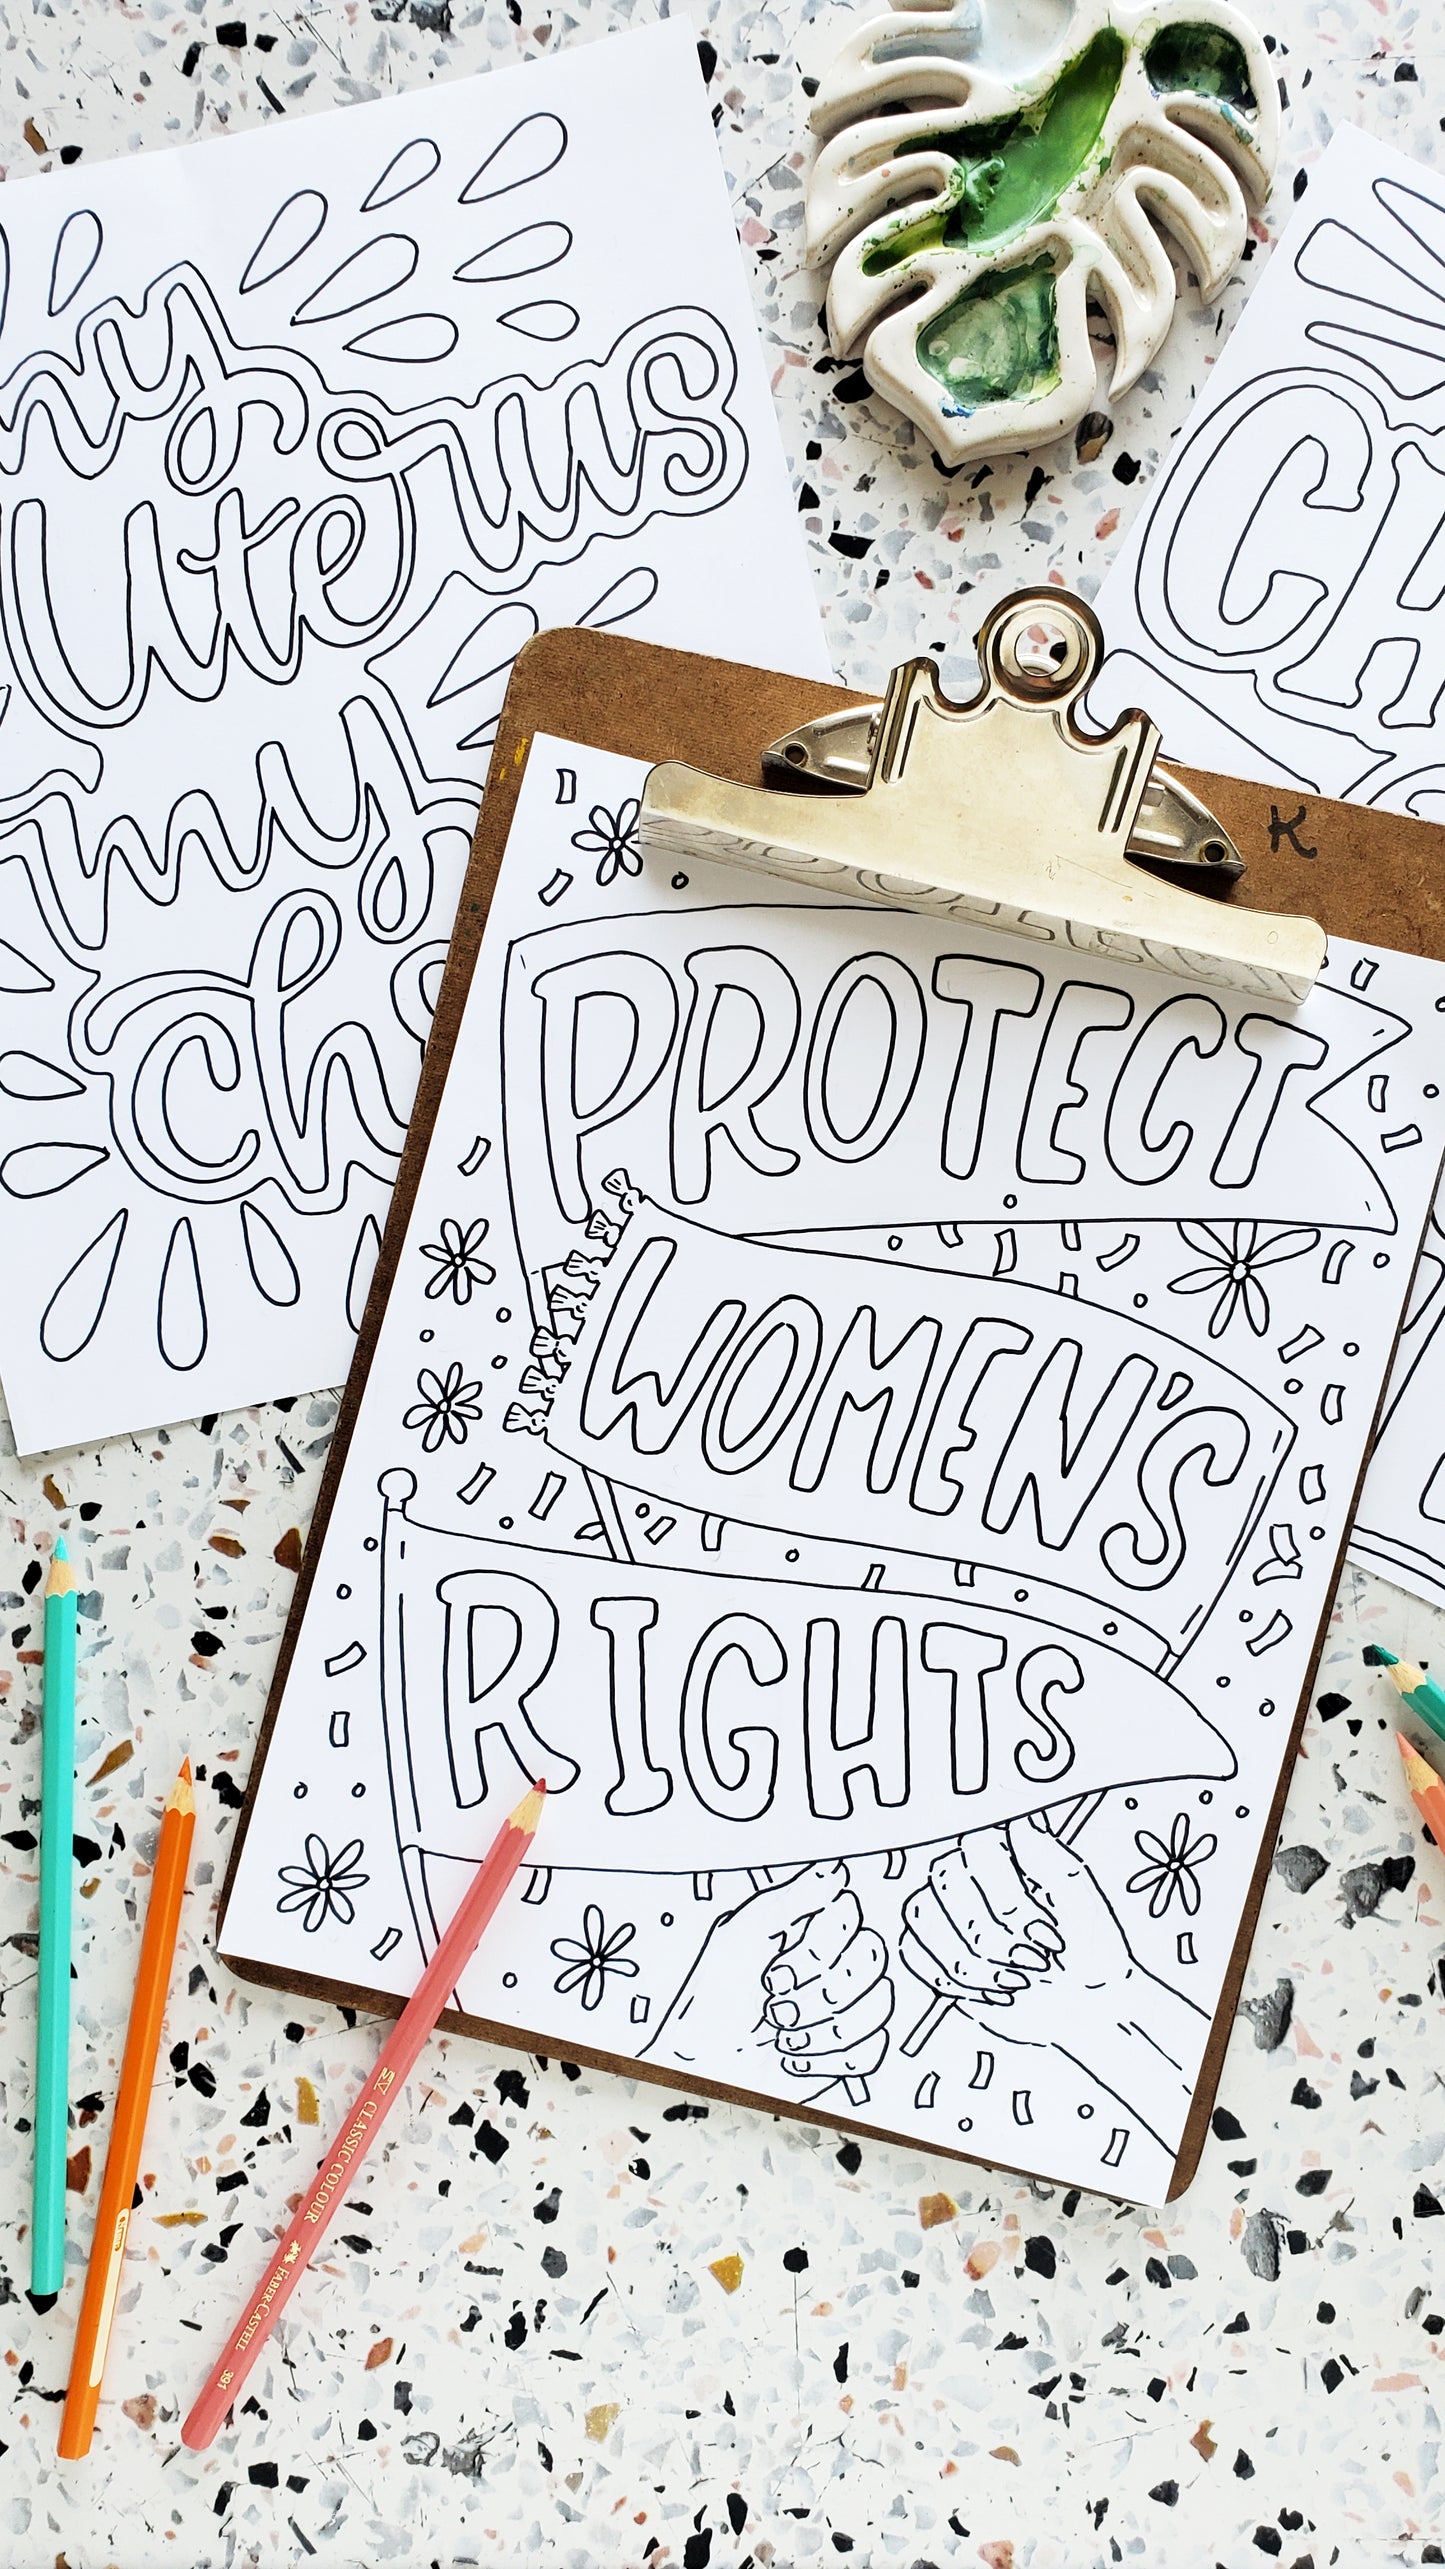 my
uterus
my
K
PROTECT
WOMEN'S
RIGHTS
CLASSIC COLOUR FABER-CASTELL 391